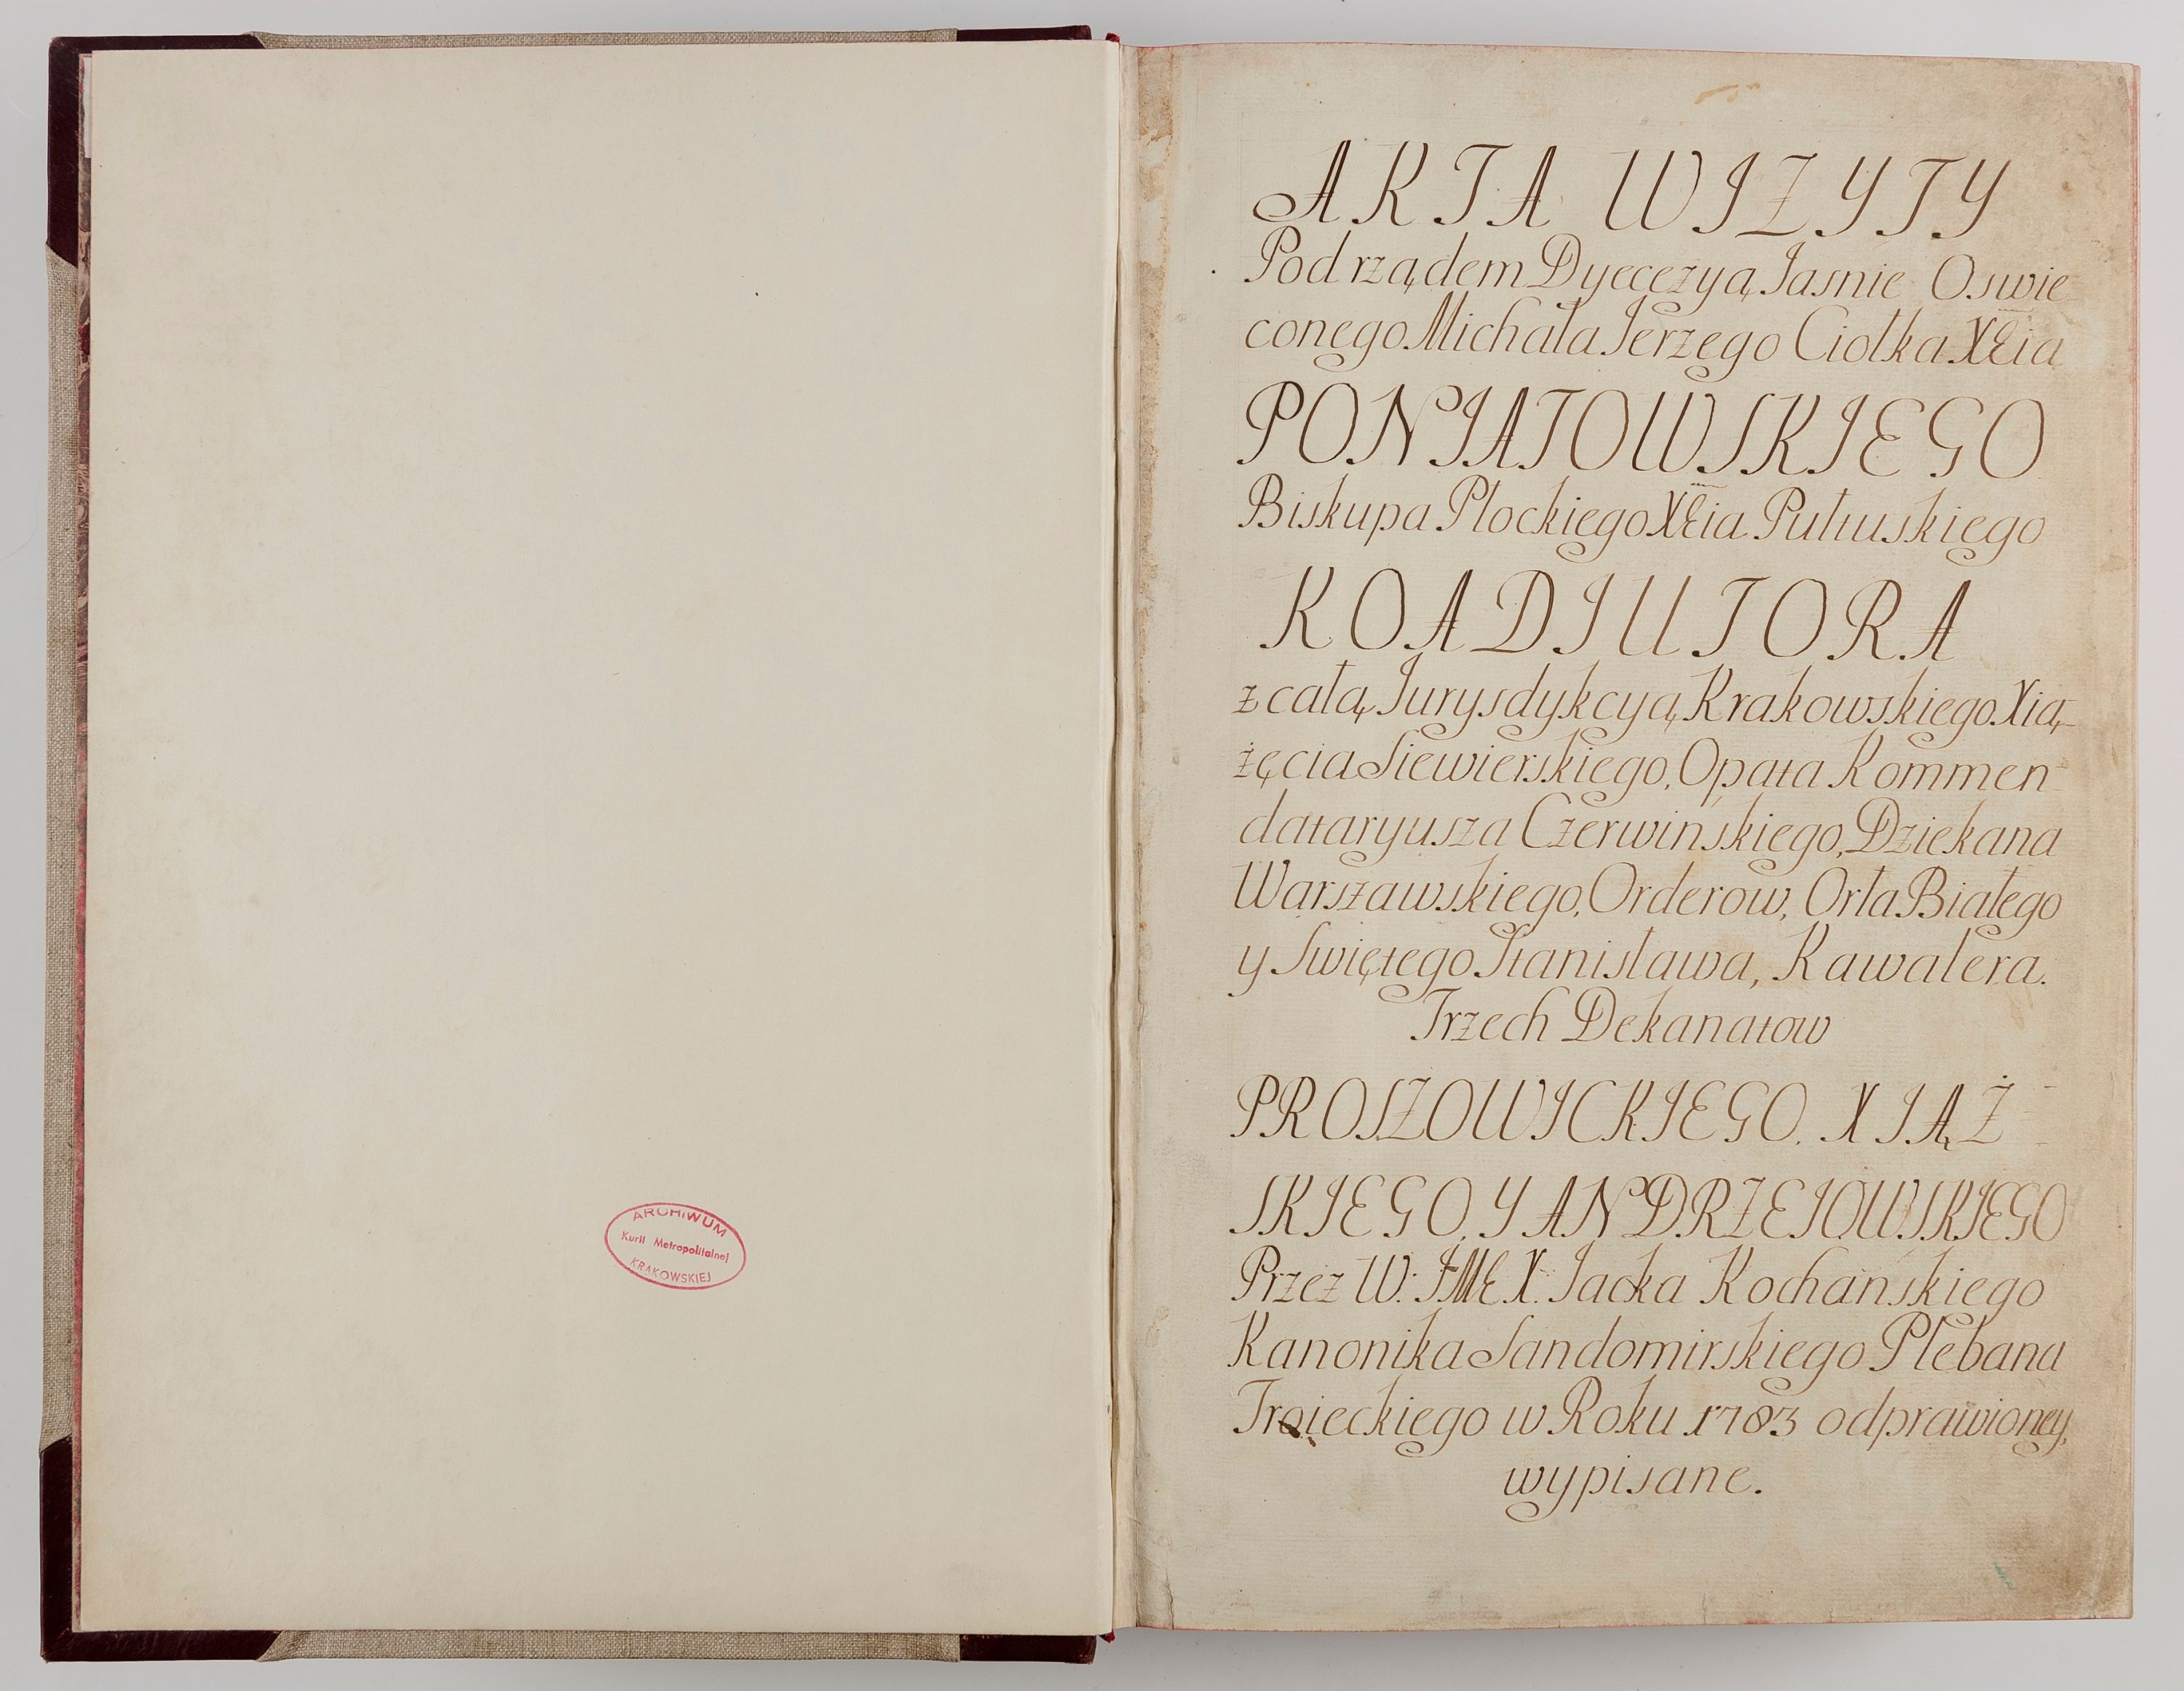 ARCHIWUM
Kurii Metropolitalnej
KRAKOWSKIEJ
AKTA WIZYTY
Pod rządem Dyecezyą Jasnie Oswie
conego Michała Jerzego Ciołka XEia
PONIATOWSKIEGO
Biskupa Płockiego XEia Pułtuskiego
KOADIUTORA
z całą Jurysdykcyą Krakowskiego Xią-
żęcia Siewierskiego, Opata Kommen-
dataryusza Czerwińskiego, Dziekana
Warszawskiego, Orderow, Orła Białego
y Swiętego Stanisława, Kawalera.
Trzech Dekanatow
PROSZOWICKIEGO. XIĄŻ-
SKIEGO, Y ANDRZEIOWSKIEGO
Przez W. JMEX. Jacka Kochańskiego
Kanonika Sandomirskiego Plebana
Troieckiego w Roku 1783 odprawioney,
wypisane.